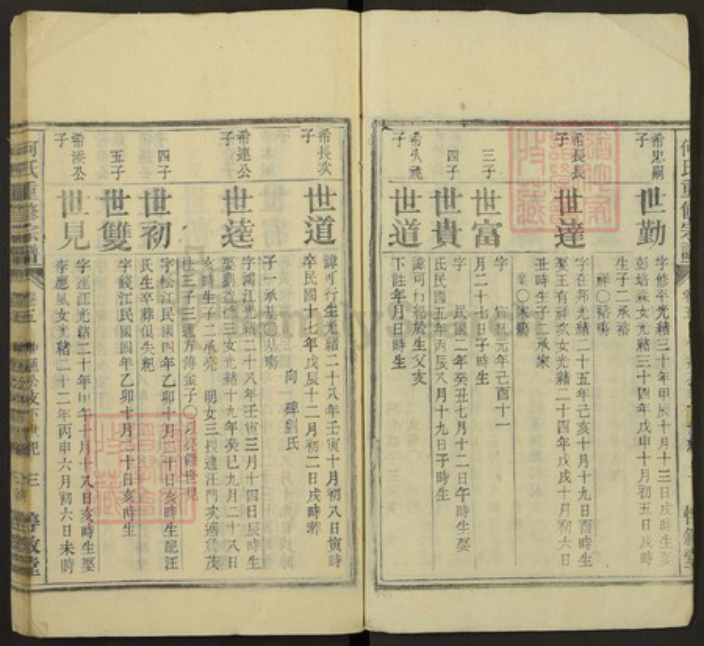 何氏重修宗譜
希思嗣子
世勤
字修平光緒三十年甲辰十月十三日戌時生娶
彭培霖女光緒三十四年戊申十月初五日戌時
生子二承裕
祥〇
希長長子
世達
字在邦光緒二十五年己亥十月十九日酉時生
娶王有祥次女光緒二十四年戊戌十月初六日
丑時生子二承家
業〇
三子
世富
字 宣統元年己酉十一
月二十七日子時生
四子
世貴
字 民國二年癸丑七月十二日午時生娶
氏民國五年丙辰八月十九日子時生
希久飛子
世道
諱可行犯於生父亥
下註年月日時生
希長次子
世道
諱可行生光緒二十八年壬寅十月初八日寅時
卒民國十七年戊辰十二月初二日戌時葬
向 碑劉氏
子一承基〇
希連公子
世逵
字鴻江光緒二十八年壬寅三月十四日辰時生
娶劉 三女光緒十九年癸巳九月二十八日
亥時生子二承亮 明女三長適汪門次適詹茂
四子
世初
字松江民國四年乙卯十月二十日亥時生配汪
氏生卒葬俱失紀
五子
世雙
字錢江民國四年乙卯十月二十日亥時生
希添公子
世見
字蓮江光緒二十年甲午十月十八日亥時生娶
李應鳳女光緒二十二年丙申六月初六日未時
何氏重修宗譜
卷五
三